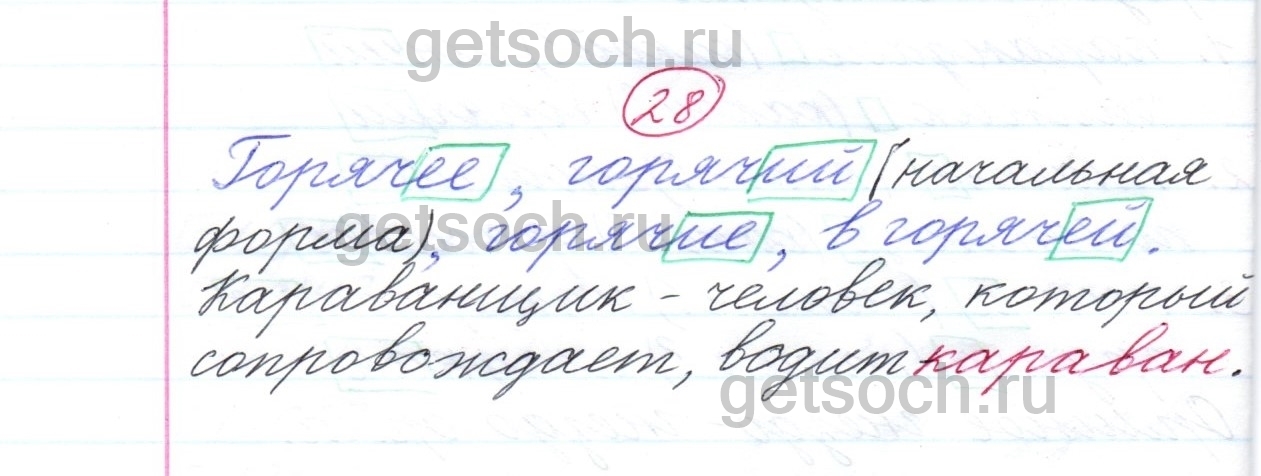 getsoch.ru
28
Горячее, горячий (начальная
форма), горячие, в горячей.
getsoch.ru
Караванщик - человек, который
сопровождает, водит караван.
getsoch.ru